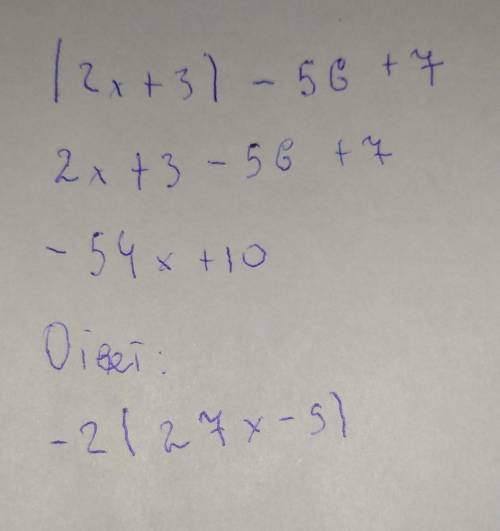 (2x+3) - 56 + 7
2x+3 - 56 + 7
- 54x +10
Ответ:
-2(27x-5)